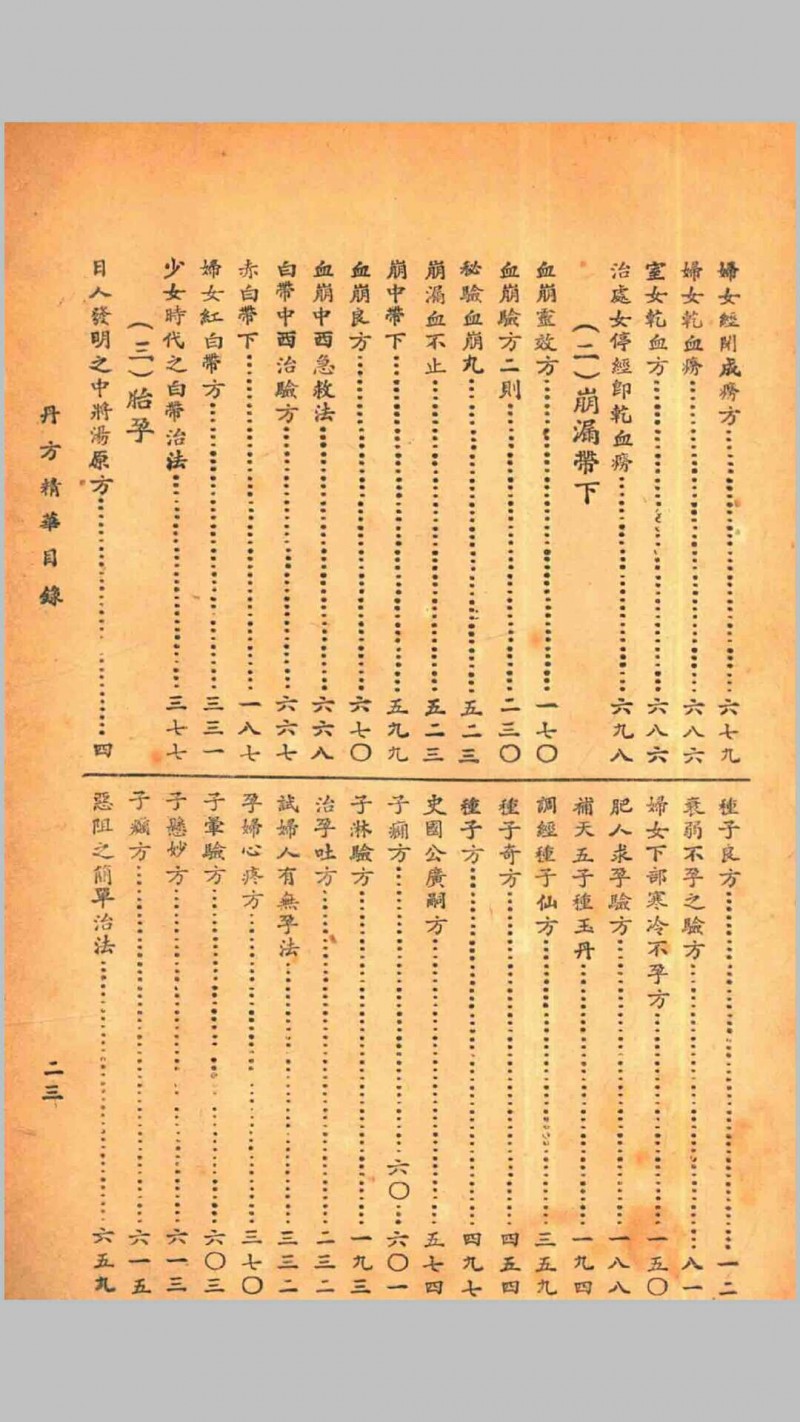 婦女經閉成癆方……六七九
婦女乾血癆……六八六
室女乾血方……六八六
治處女停經即乾血癆……六九八
(二)崩漏帶下
血崩靈效方……一七〇
血崩驗方二則……二三〇
秘驗血崩丸……五二三
崩漏血不止……五二三
崩中帶下……五九九
血崩良方……六七〇
血崩中西急救法……六六八
白帶中西治驗方……六六七
赤白帶下……一八七
婦女紅白帶方……三三一
少女時代之白帶治法……三七七
(三)胎孕
日人發明之中將湯原方……四
種子良方……一二
衰弱不孕之驗方……八一
婦女下部寒冷不孕方……一五〇
肥人求孕驗方……一八八
補天五子種玉丹……一九四
調經種子仙方……三五九
種子奇方……四五四
種子方……四九七
史國公廣嗣方……五七四
子癇方……六〇…六〇一
子淋驗方……一九三
治孕吐方……二三二
試婦人有無孕法……三三二
孕婦心疼方……三七〇
子暈驗方……六〇三
子懸妙方……六一三
子癥方……六一五
惡阻之簡單治法……六五九
丹方精華目錄
二三